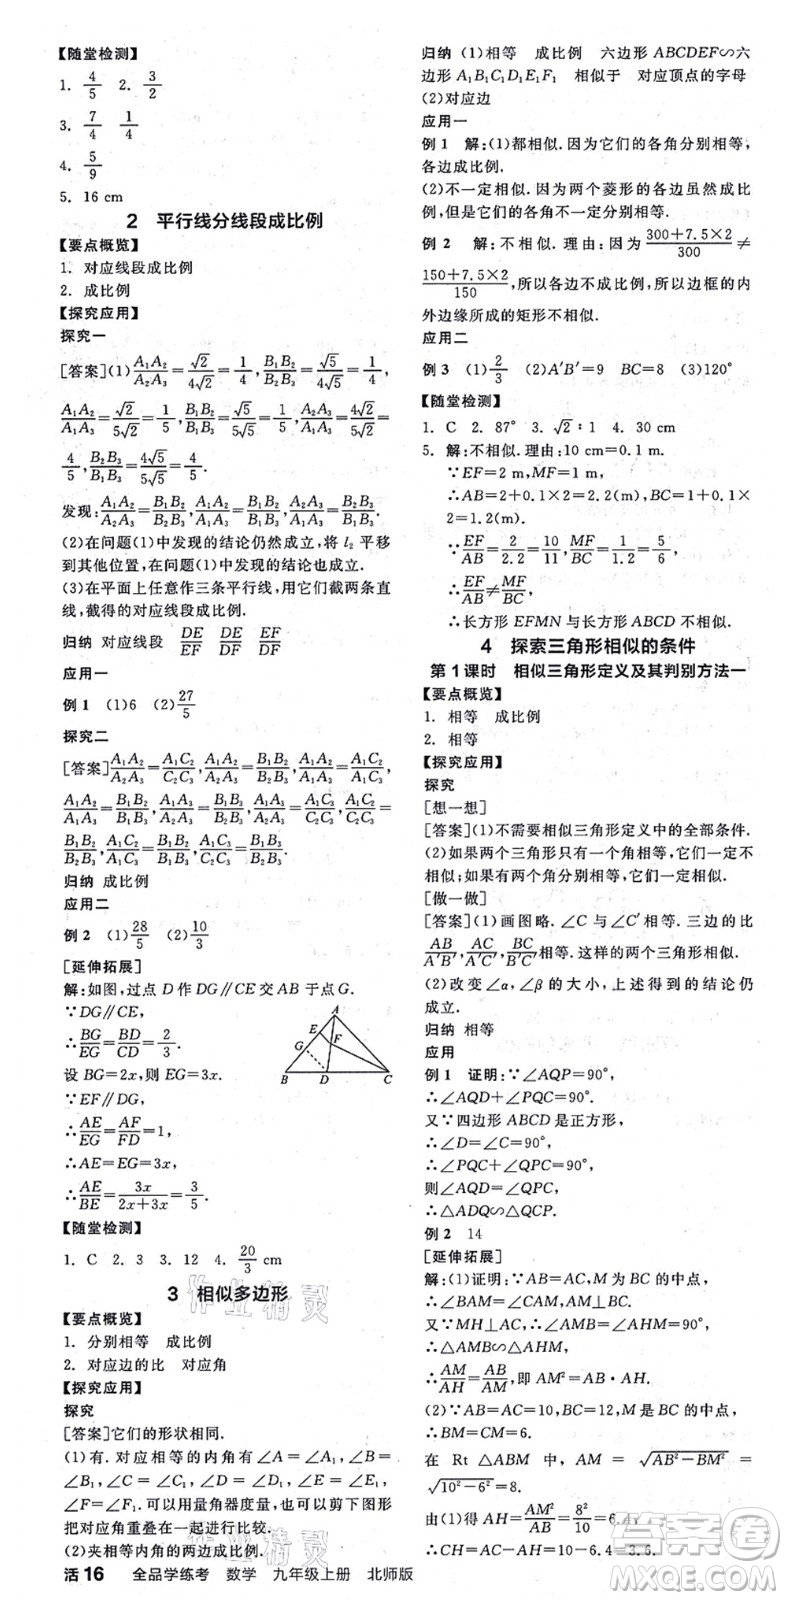 【随堂检测】
1. 4/5 2. 3/2
3. 7/4 1/4
4. 5/9
5. 16 cm
2 平行线分线段成比例
【要点概览】
1. 对应线段成比例
2. 成比例
【探究应用】
探究一
[答案](1)A₁A₂/A₂A₃=√2/4√2=1/4,B₁B₂/B₂B₃=√5/4√5=1/4,
A₁A₂/A₁A₃=√2/5√2=1/5,B₁B₂/B₁B₃=√5/5√5=1/5,A₂A₃/A₁A₃=4√2/5√2=
4/5,B₂B₃/B₁B₃=4√5/5√5=4/5.
发现:A₁A₂/A₂A₃=B₁B₂/B₂B₃,A₁A₂/A₁A₃=B₁B₂/B₁B₃,A₂A₃/A₁A₃=B₂B₃/B₁B₃.
(2)在问题(1)中发现的结论仍然成立,将 l₂ 平移
到其他位置,在问题(1)中发现的结论也成立.
(3)在平面上任意作三条平行线,用它们截两条直
线,截得的对应线段成比例.
归纳 对应线段 DE/EF DE/DF EF/DF
应用一
例 1 (1)6 (2)27/5
探究二
归纳 成比例
应用二
例 2 (1)28/5 (2)10/3
[延伸拓展]
解:如图,过点 D 作 DG∥CE 交 AB 于点 G.
∵DG∥CE,
∴BG/EG=BD/CD=2/3.
设 BG=2x,则 EG=3x.
∵EF∥DG,
∴AE/EG=AF/FD=1,
∴AE=EG=3x,
∴AE/BE=3x/(2x+3x)=3/5.
A
E
F
G
B D C
【随堂检测】
1. C 2. 3 3. 12 4. 20/3 cm
3 相似多边形
【要点概览】
1. 分别相等 成比例
2. 对应边的比 对应角
【探究应用】
探究
[答案]它们的形状相同.
(1)有. 对应相等的内角有∠A=∠A₁,∠B=
∠B₁,∠C=∠C₁,∠D=∠D₁,∠E=∠E₁,
∠F=∠F₁. 可以用量角器度量,也可以剪下图形
把对应角重叠在一起进行比较.
(2)夹相等内角的两边成比例.
归纳 (1)相等 成比例 六边形 ABCDEF∽六
边形 A₁B₁C₁D₁E₁F₁ 相似于 对应顶点的字母
(2)对应边
应用一
例 1 解:(1)都相似. 因为它们的各角分别相等,
各边成比例.
(2)不一定相似. 因为两个菱形的各边虽然成比
例,但它们的各角不一定分别相等.
例 2 解:不相似. 理由:因为(300+7.5×2)/300≠
(150+7.5×2)/150,所以各边不成比例,所以边框的内
外边缘所成的矩形不相似.
应用二
例 3 (1)2/3 (2)A′B′=9 BC=8 (3)120°
【随堂检测】
1. C 2. 87° 3. √2∶1 4. 30 cm
5. 解:不相似. 理由:10 cm=0.1 m.
∵EF=2 m,MF=1 m,
∴AB=2+0.1×2=2.2(m),BC=1+0.1×
2=1.2(m).
∵EF/AB=2/2.2=10/11,MF/BC=1/1.2=5/6,
∴EF/AB≠MF/BC,
∴长方形 EFMN 与长方形 ABCD 不相似.
4 探索三角形相似的条件
第 1 课时 相似三角形定义及其判别方法一
【要点概览】
1. 相等 成比例
2. 相等
【探究应用】
探究
[想一想]
[答案](1)不需要相似三角形定义中的全部条件.
(2)如果两个三角形只有一个角相等,它们不一定
相似;如果有两个角分别相等,它们一定相似.
[做一做]
[答案](1)画图略. ∠C 与∠C′相等. 三边的比
AB/A′B′,AC/A′C′,BC/B′C′相等. 这样的两个三角形相似.
(2)改变∠α,∠β的大小,上述得到的结论仍
成立.
归纳 相等
应用
例 1 证明:∵∠AQP=90°,
∴∠AQD+∠PQC=90°.
又∵四边形 ABCD 是正方形,
∴∠D=∠C=90°,
∴∠DAQ+∠AQD=90°,
则∠DAQ=∠PQC,
∴△ADQ∽△QCP.
例 2 14
[延伸拓展]
解:(1)证明:∵AB=AC,M 为 BC 的中点,
∴∠BAM=∠CAM,AM⊥BC.
又∵MH⊥AC,∴∠AMB=∠AHM=90°,
∴△AMB∽△AHM,
∴AM/AH=AB/AM,即 AM²=AB·AH.
(2)∵AB=AC=10,BC=12,M 为 BC 的中点,
∴BM=CM=6.
在 Rt△ABM 中,AM=√(AB²−BM²)=
√(10²−6²)=8.
由(1)得 AH=AM²/AB=8²/10=6.4,
∴CH=AC−AH=10−6.4=3.6.
活 16 全品学练考 数学 九年级上册 北师版
作业精灵
作业精灵
答案圈
MXQE.COM